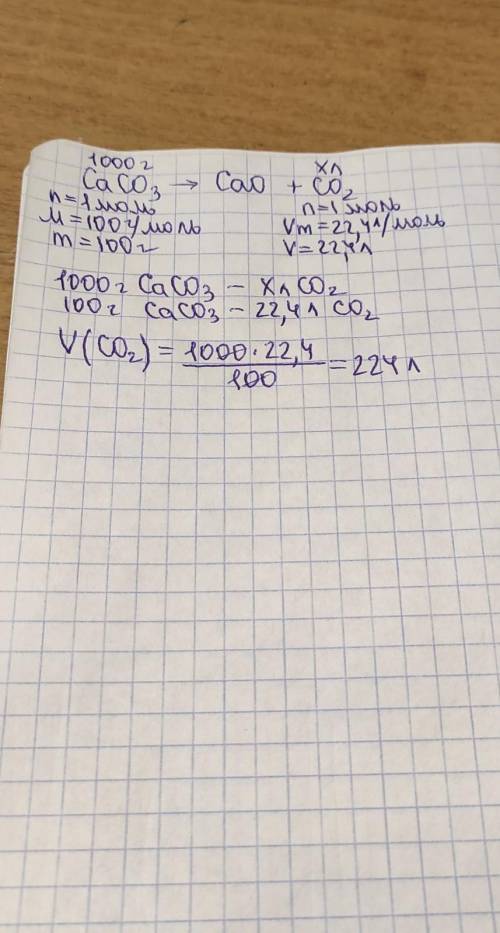 1000г xл
CaCO₃ → CaO + CO₂
n=1моль n=1моль
M=100г/моль Vm=22,4л/моль
m=100г V=22,4л
1000г CaCO₃ – xл CO₂
100г CaCO₃ – 22,4л CO₂
V(CO₂) = 1000·22,4 / 100 = 224л